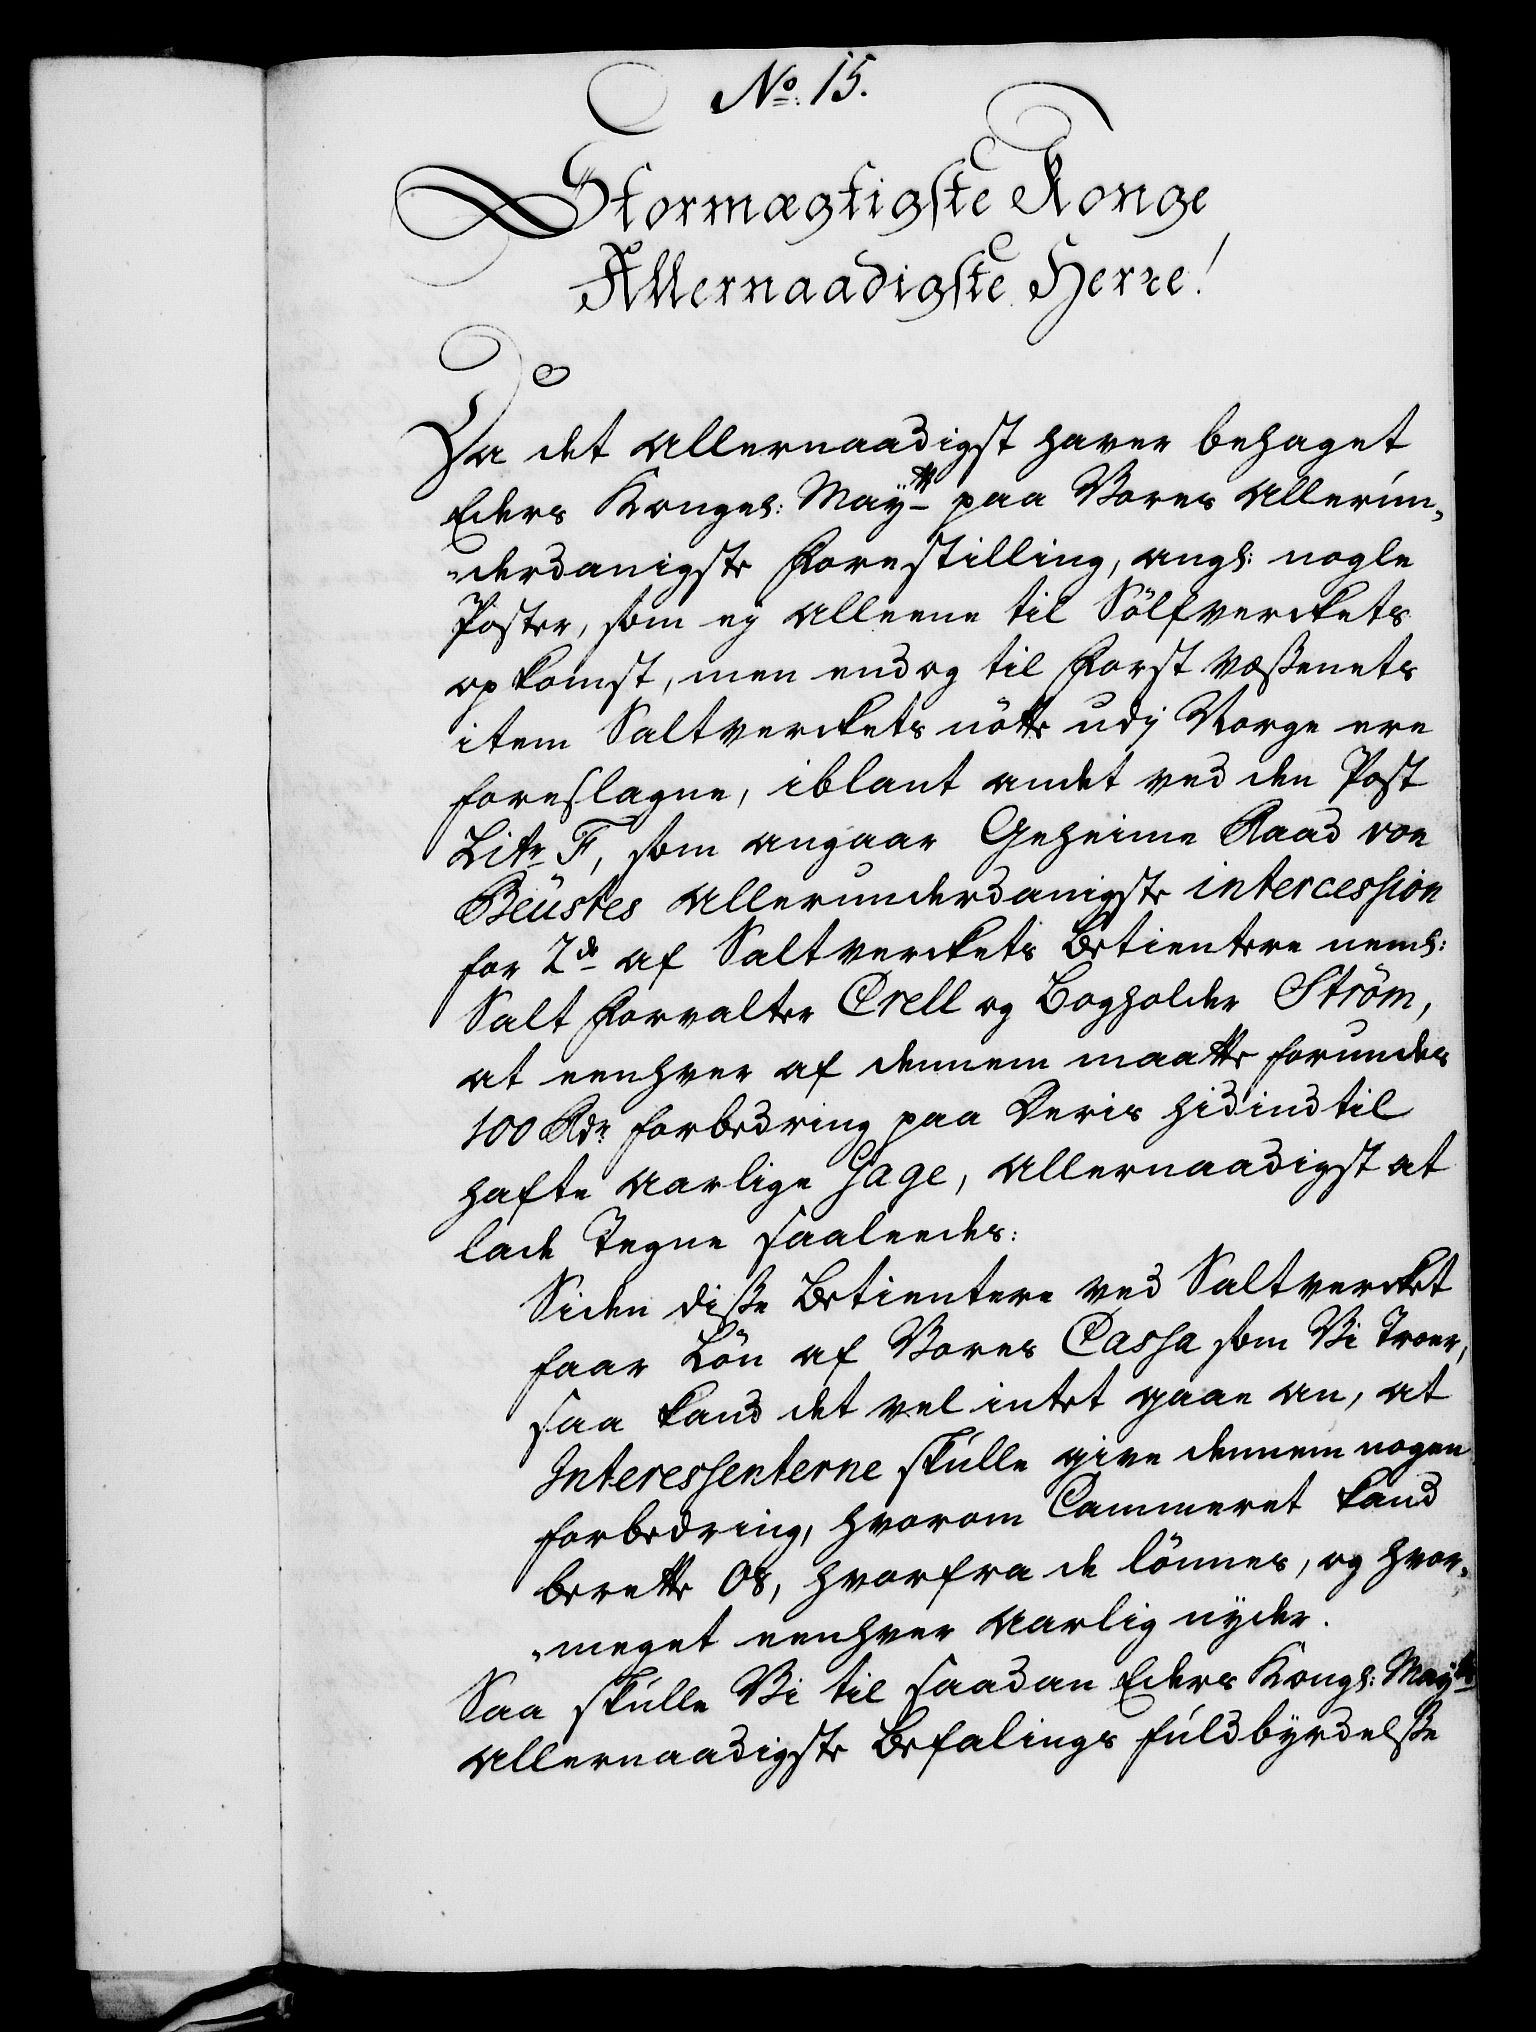 No. 15.
Stormægtigste Konge
Allernaadigste Herre!
Da det allernaadigst haver behaget
Eders Kongel: Mayᵗᵗ paa Vores allerun„
„derdanigste Forestilling, angl: nogle
Poster, som ey alleene til Sölfverckets
opkomst, men endog til Forst væßenets
item Saltverckets nötte udj Norge ere
foreslagne, iblant andet ved den Post
Litr F, som angaar Geheime Raad von
Beüstes allerunderdanigste intercession
for 2de af Saltverckets Betientere neml:
Salt Forvalter Crell og Bogholder Ström,
at eenhver af dennem maatte forundes
100 Rdr forbedring paa Deris hidindtil
hafte aarlige Gage, allernaadigst at
lade Tegne saaleedes:
Siden diße Betientere ved Saltvercket
faar Lön af Vores Cassa som Vi troer,
saa kand det vel intet gaae an, at
Interessenterne skulle give dennem nogen
forbedring, hvorom Cammeret kand
berette Os, hvorfra de lönnes, og hvor„
„meget eenhver aarlig nyder.
Saa skulle Vi til saadan Eders Kongl: Mayᵗˢ
allernaadigste Befalings fuldbyrdelße